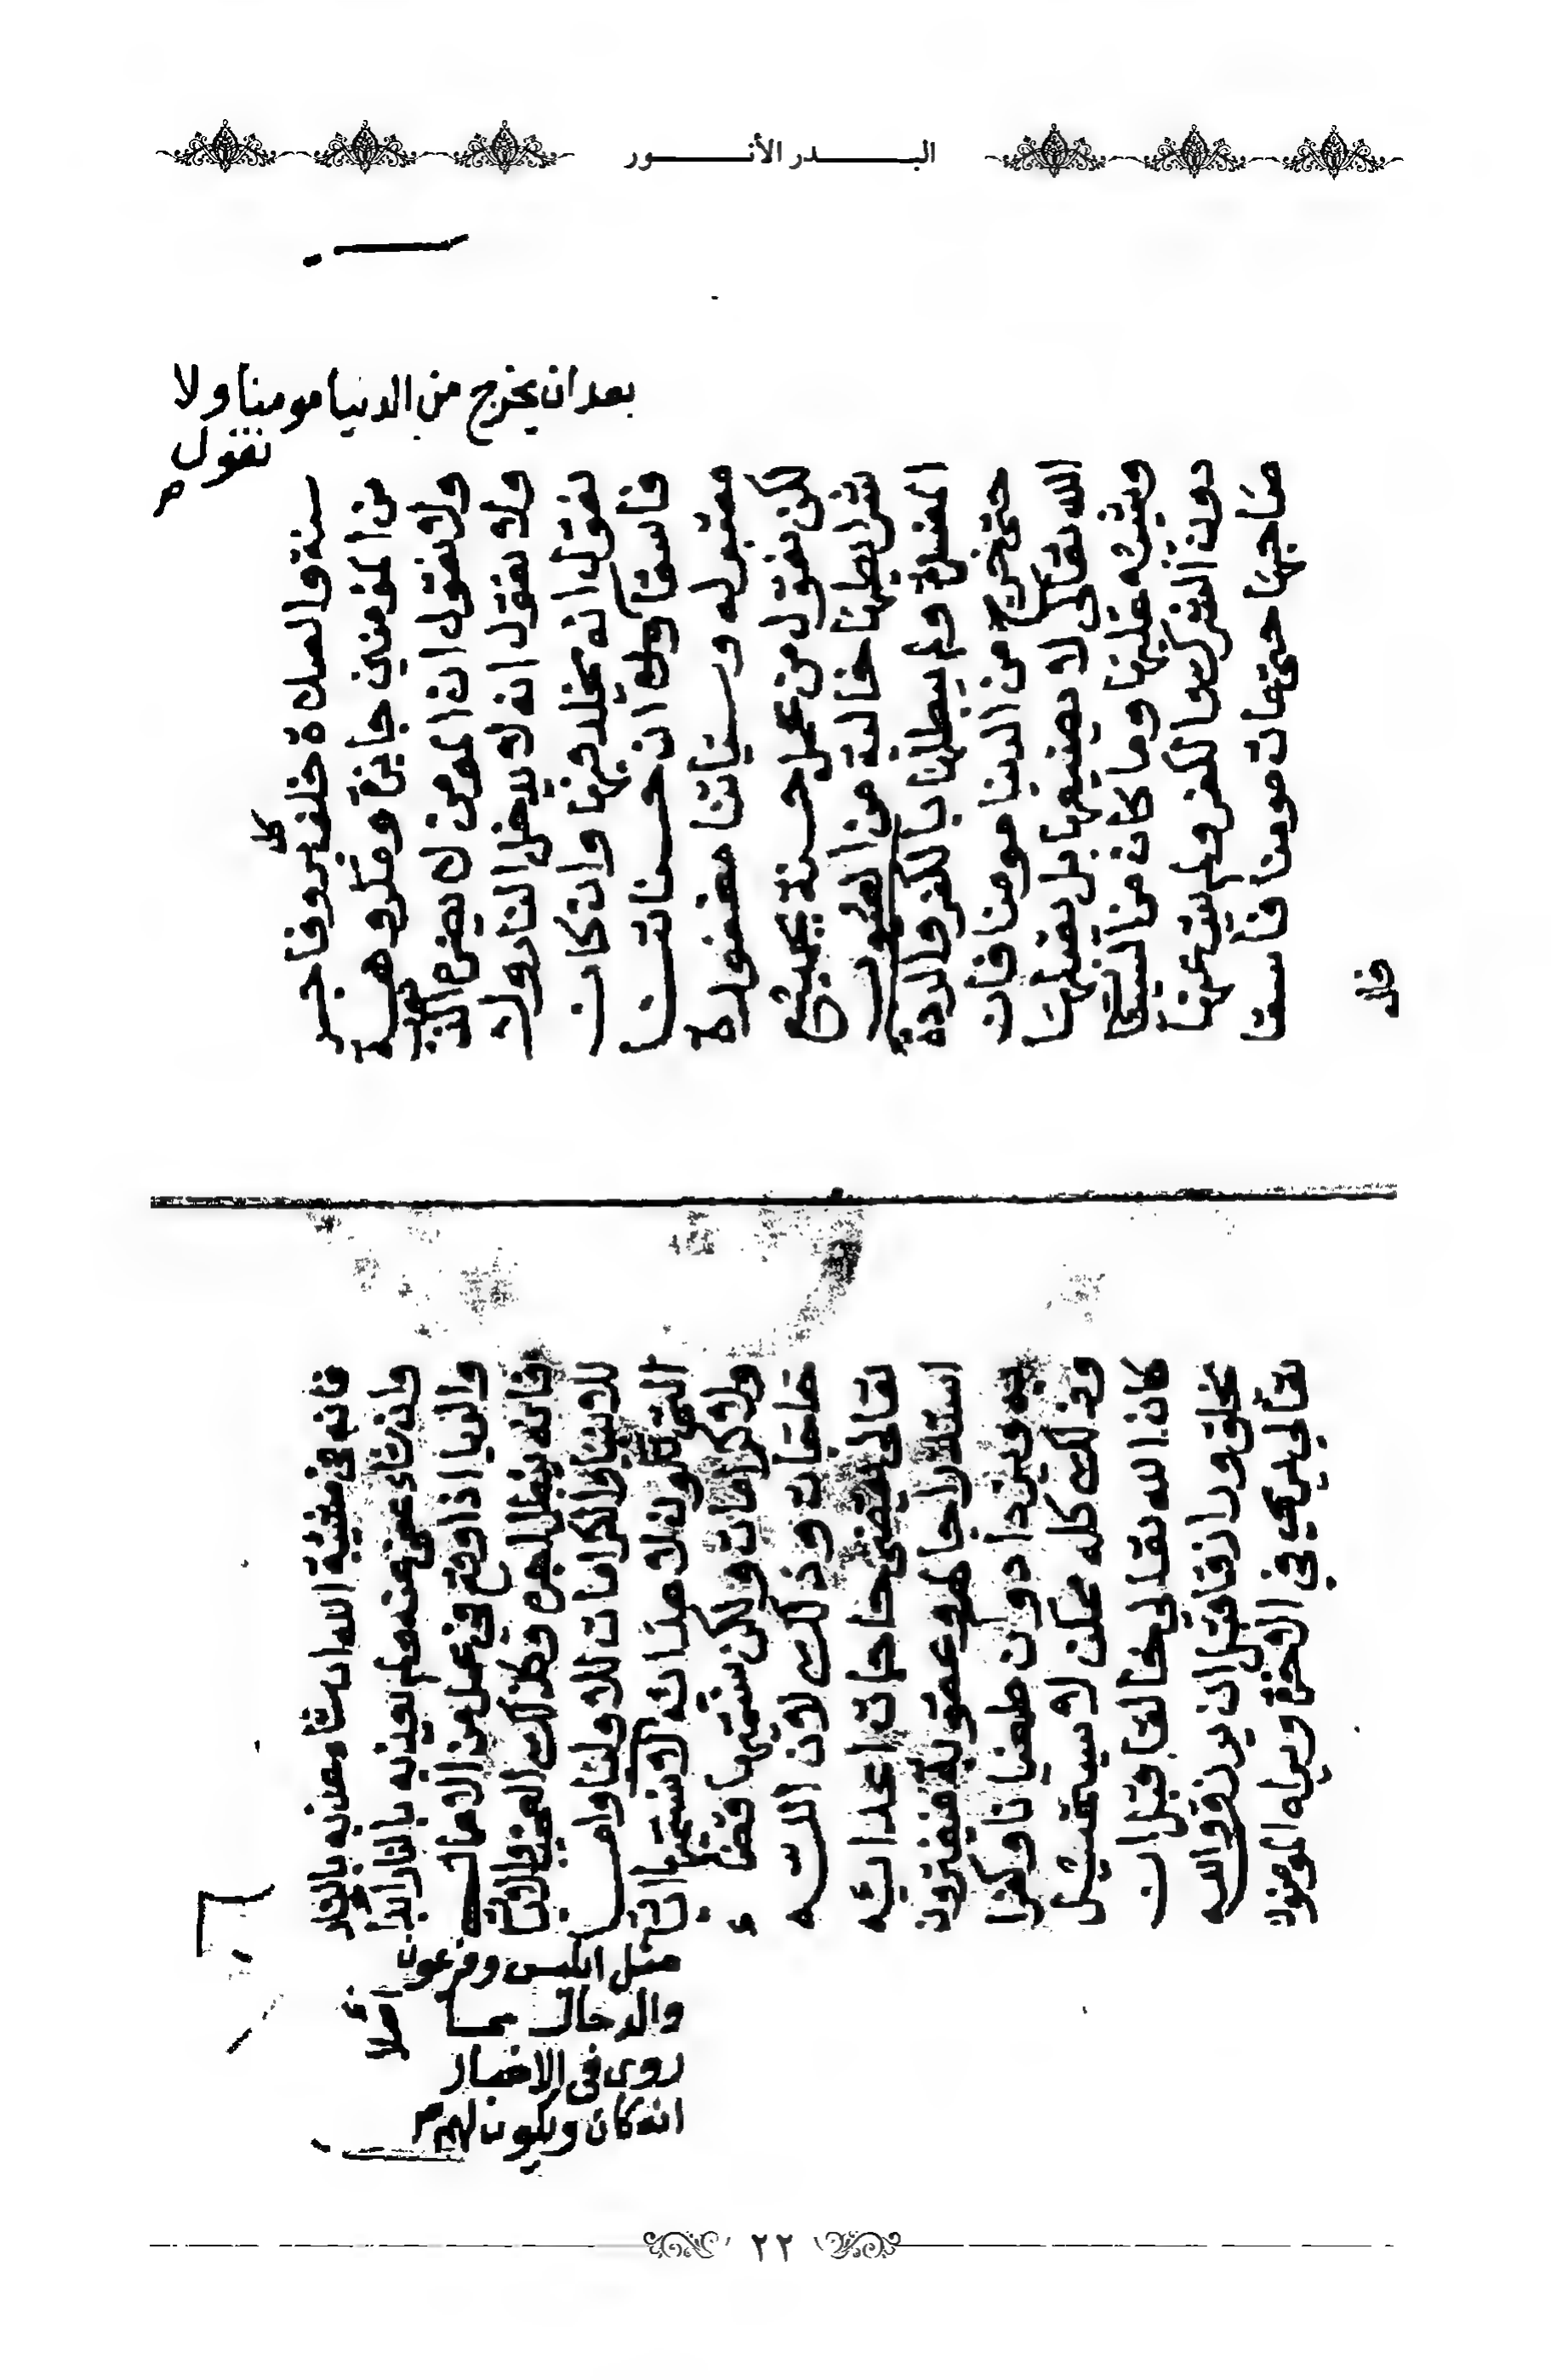 البـــدر الأنـــور
بعد ان يخرج من الدنيا مومنا ولا
نقول
سنة والصلاة خلف كل بر وفاجر
من المؤمنين جايزة ومكروهة
ولا نقول ان المومن لا يضره الذنوب
ولا نقول انه لا يدخل النار ولا
نقول انه يخلد فيها وان كان
فاسقا ولا ان حسناتنا
مقبولة وسياتنا مغفورة
لكن نقول من عمل حسنة بجميع
شرايطها خالية من العيوب
المفسدة ولم يبطلها بالكفر والردة
حتى خرج من الدنيا مومنا فان
الله تعالى لا يضيعها بل يقبلها
ويثيبه عليها وما كان من السيئات
دون الشرك والكفر ولم يتب عنها
صاحبها حتى مات مومنا فاسقا
فانه
فانه في مشية الله ان شاء عذبه بالنار
وان شاء عفى عنه ولم يعذبه بالنار ابدا
اصلا
والريا اذا وقع في عمل من الاعمال
فانه يبطل اجره وكذلك العجب والايات
للانبيا والكرامات للاوليا واما
التي تكون لاعدائه لا نسميها ايات
ولا كرامات ولكن نسميها قضاء
حاجات وذلك لان الله
تعالى يقضي حاجات اعدائه
استدراجا لهم وعقوبة فيغترون
به ويزدادون طغيانا وكفرا
وذلك كله ممكن لا يستحيل
كان الله تعالى خالقا قبل ان
يخلق ورازقا قبل ان يرزق والله
تعالى يرى في الاخرة ويراه المومنون
مثل ابليس وفرعون
والدجال مما
روى في الاخبار
انه كان ويكون لهم
٢٢